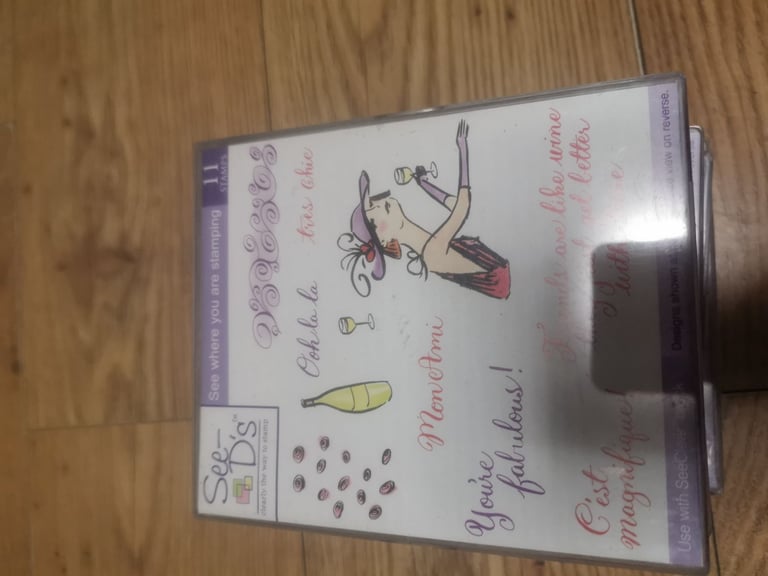 See-
D's™
clearly the way to stamp
See where you are stamping
11
STAMPS
Ooh la la
très chic
Mon Ami
You're
fabulous!
C'est
Magnifique!
Friends are like wine
better
with
Use with See
Designs shown
view on reverse.